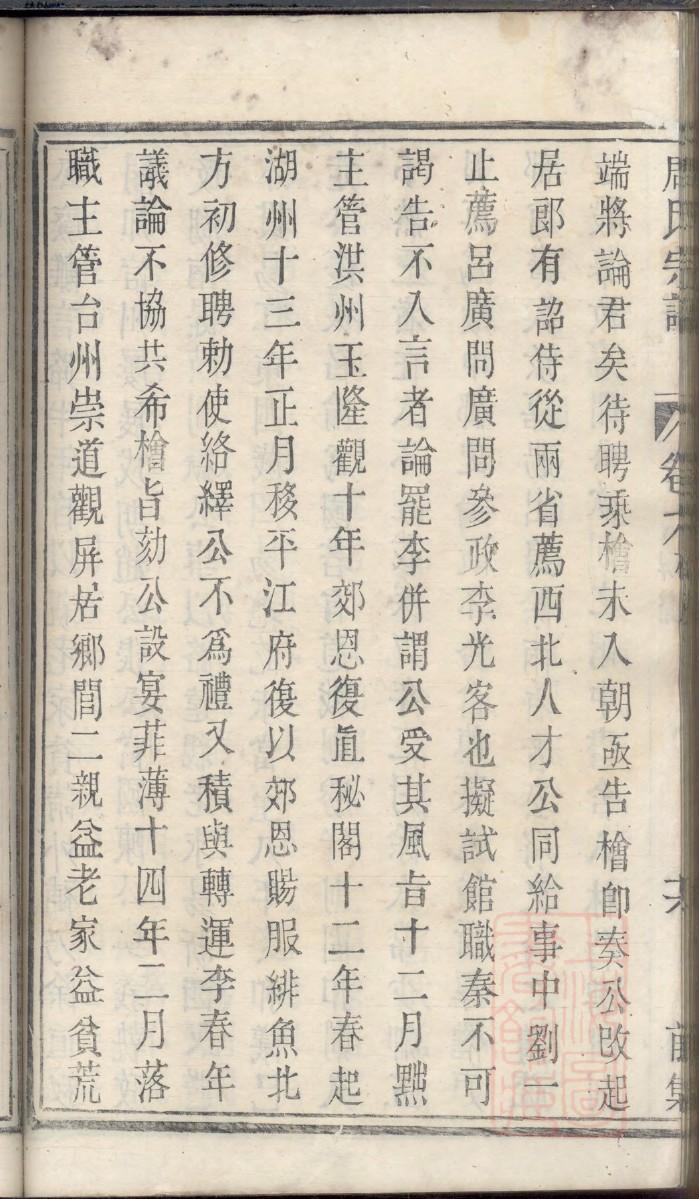 周氏宗譜 卷六 前集
端將論君矣待聘乘檜未入朝亟告檜卽奏公改起
居郎有詔侍從兩省薦西北人才公同給事中劉一
止薦呂廣問廣問參政李光客也擬試館職秦不可
謁告不入言者論罷李併謂公受其風旨十二月黜
主管洪州玉隆觀十年郊恩復直秘閣十二年春起
湖州十三年正月移平江府復以郊恩賜服緋魚北
方初修聘勅使絡繹公不爲禮又積與轉運李春年
議論不協共希檜旨劾公設宴菲薄十四年二月落
職主管台州崇道觀屏居鄉閭二親益老家益貧荒